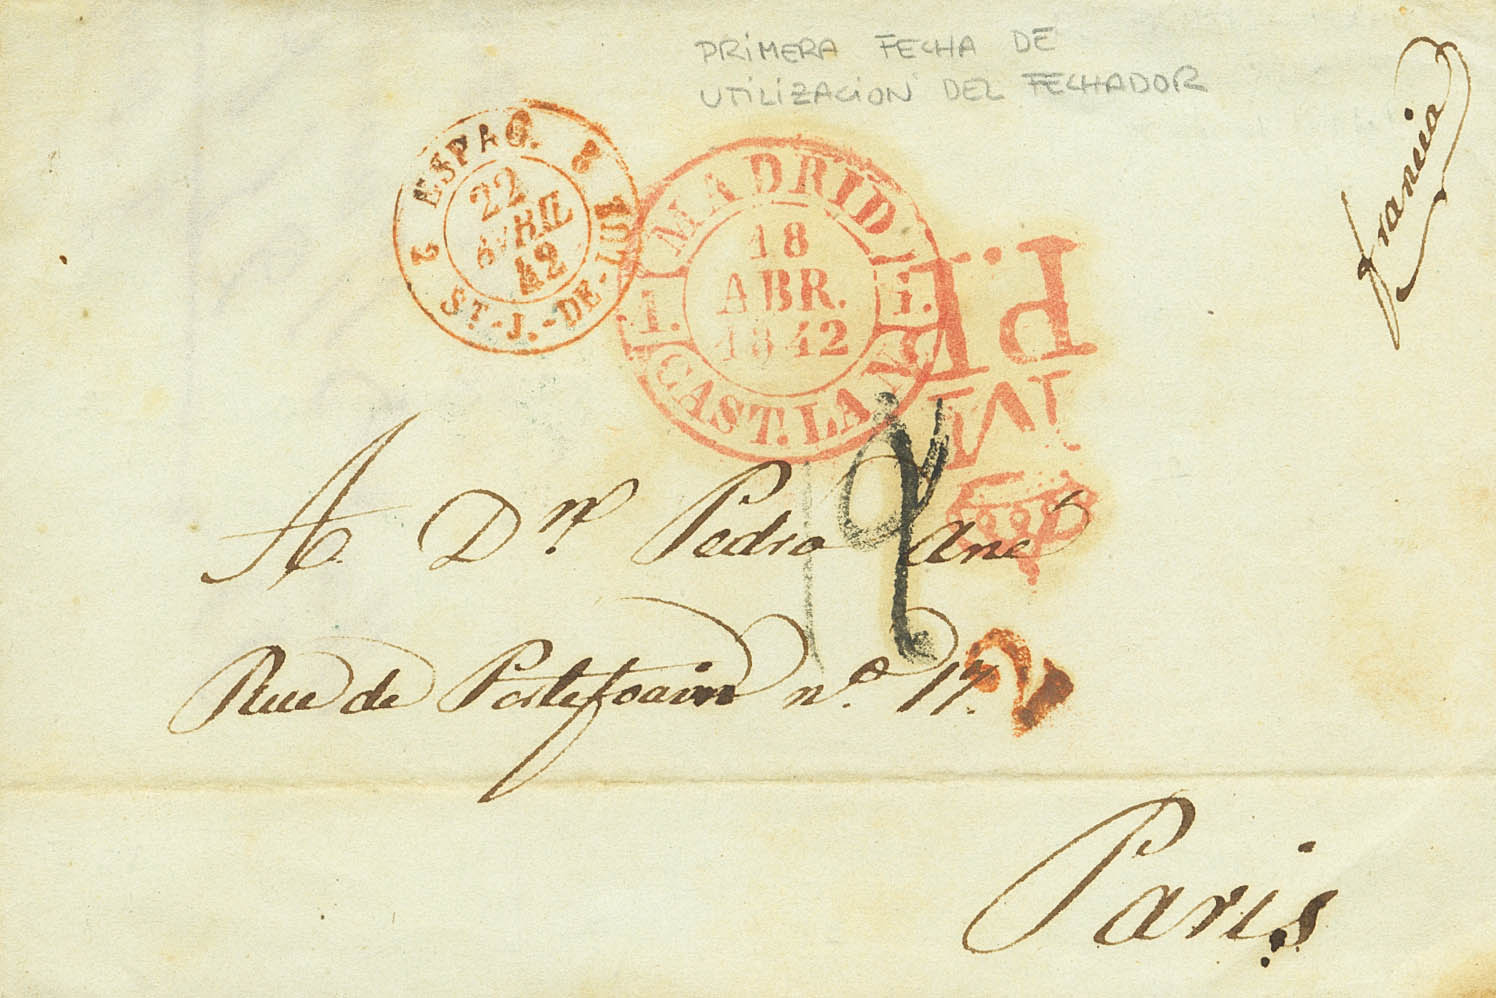 PRIMERA FECHA DE
UTILIZACION DEL FECHADOR
Francia
2 ESPAG. 8
22
AVRIL
42
ST.-J.-DE-LUZ
MADRID
1. 1.
18
ABR.
1842
CAST. LA N.
P.P.
M
A Dn. Pedro Ané
Rue de Portefoain nº. 17.
2
Paris